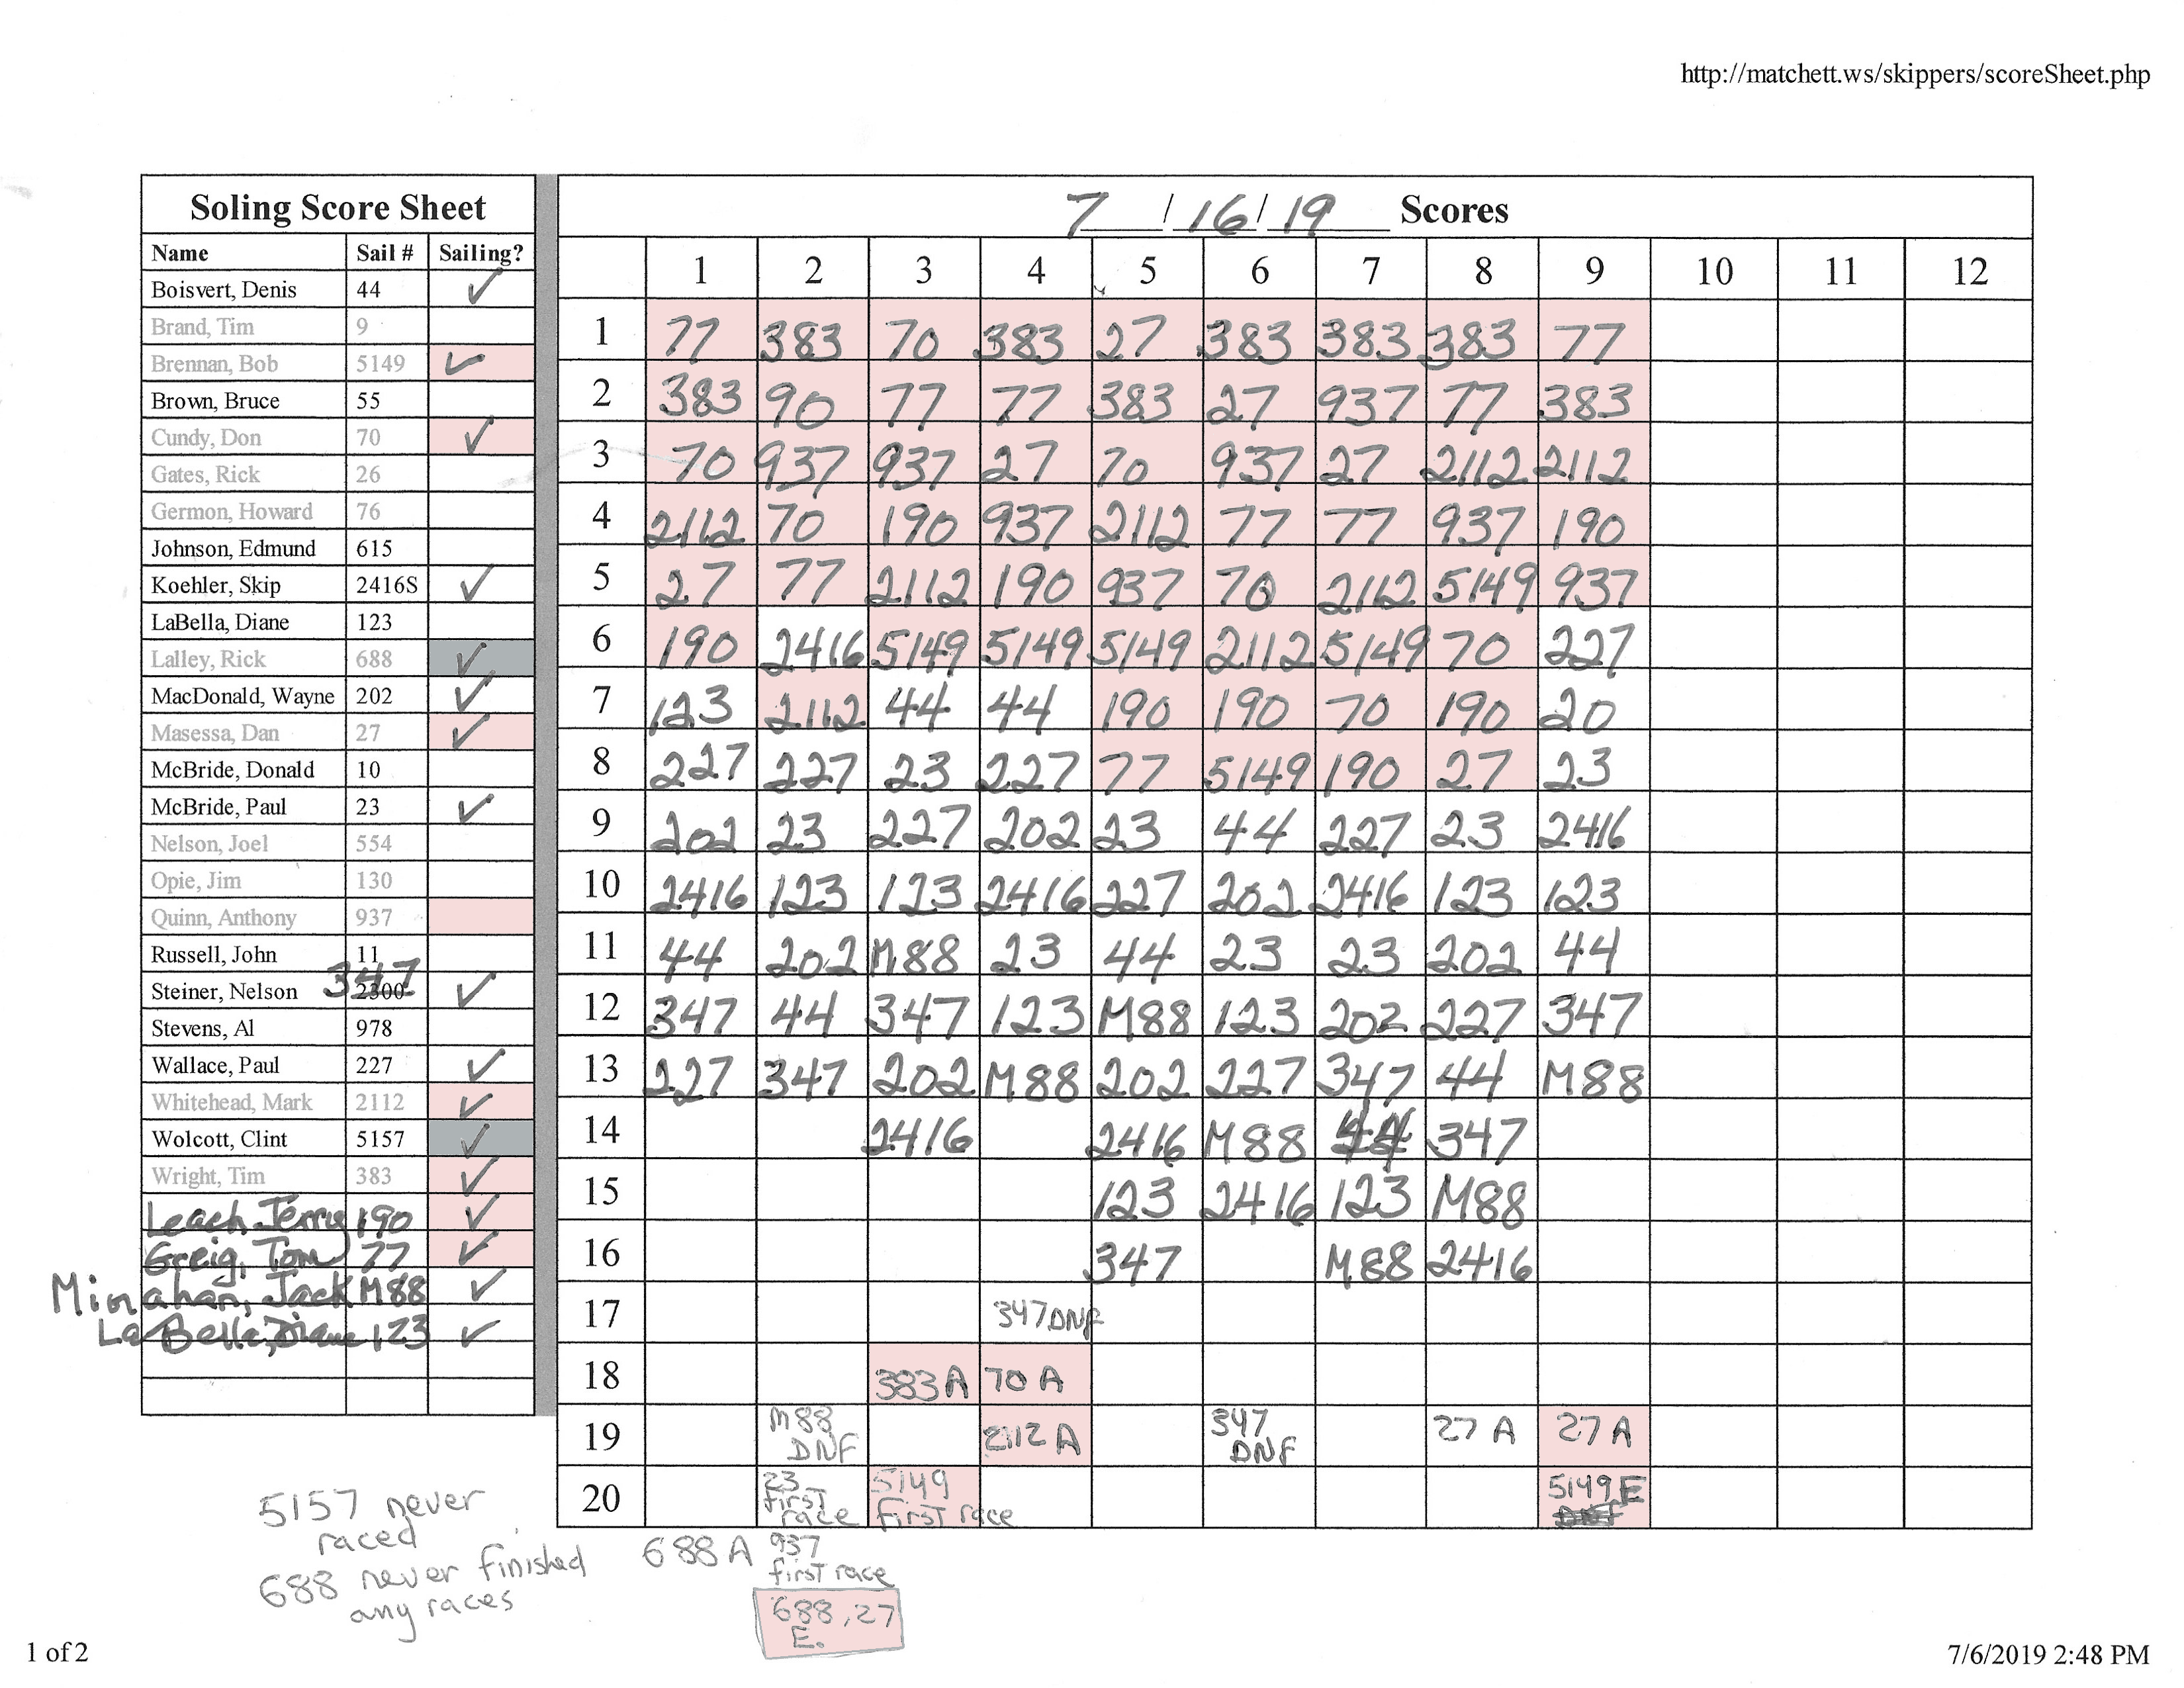 http://matchett.ws/skippers/scoreSheet.php
Soling Score Sheet
7 / 16 / 19 Scores
Name Sail # Sailing?
1 2 3 4 5 6 7 8 9 10 11 12
Boisvert, Denis 44 ✓
Brand, Tim 9
Brennan, Bob 5149 ✓
Brown, Bruce 55
Cundy, Don 70 ✓
Gates, Rick 26
Germon, Howard 76
Johnson, Edmund 615
Koehler, Skip 2416S ✓
LaBella, Diane 123
Lalley, Rick 688 ✓
MacDonald, Wayne 202 ✓
Masessa, Dan 27 ✓
McBride, Donald 10
McBride, Paul 23 ✓
Nelson, Joel 554
Opie, Jim 130
Quinn, Anthony 937
Russell, John 11
Steiner, Nelson 347 2300 ✓
Stevens, Al 978
Wallace, Paul 227 ✓
Whitehead, Mark 2112 ✓
Wolcott, Clint 5157 ✓
Wright, Tim 383 ✓
Leach, Jerry 190 ✓
Greig, Tom 77 ✓
Minahan, Jack M88 ✓
La Bella, Diane 123 ✓
1 77 383 70 383 27 383 383 383 77
2 383 90 77 77 383 27 937 77 383
3 70 937 937 27 70 937 27 2112 2112
4 2112 70 190 937 2112 77 77 937 190
5 27 77 2112 190 937 70 2112 5149 937
6 190 2416 5149 5149 5149 2112 5149 70 227
7 123 2112 44 44 190 190 70 190 20
8 227 227 23 227 77 5149 190 27 23
9 202 23 227 202 23 44 227 23 2416
10 2416 123 123 2416 227 202 2416 123 123
11 44 202 M88 23 44 23 23 202 44
12 347 44 347 123 M88 123 202 227 347
13 227 347 202 M88 202 227 347 44 M88
14 2416 2416 M88 44 347
15 123 2416 123 M88
16 347 M88 2416
17 347 DNF
18 383 A 70 A
19 M88 DNF 2112 A 347 DNF 27 A 27 A
20 23 first race 5149 first race 5149 E
688 A 937
first race
688, 27
E.
5157 never
raced
688 never finished
any races
1 of 2
7/6/2019 2:48 PM